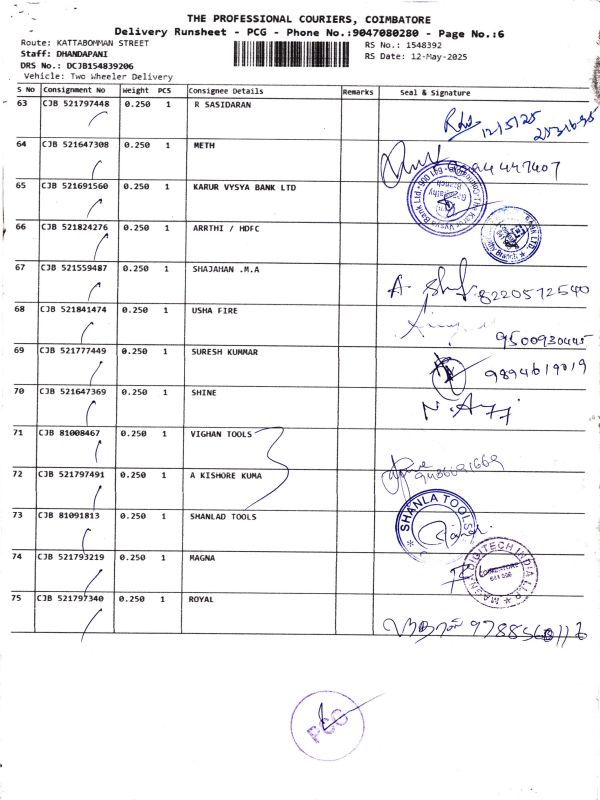 THE PROFESSIONAL COURIERS, COIMBATORE
Delivery Runsheet - PCG - Phone No.:9047080280 - Page No.:6
Route: KATTABOMMAN STREET
RS No.: 1548392
Staff: DHANDAPANI
RS Date: 12-May-2025
DRS No.: DCJB154839206
Vehicle: Two Wheeler Delivery
S No Consignment No Weight PCS Consignee Details Remarks Seal & Signature
63 CJB 521797448 0.250 1 R SASIDARAN
12/5/25
64 CJB 521647308 0.250 1 METH
65 CJB 521691560 0.250 1 KARUR VYSYA BANK LTD
66 CJB 521824276 0.250 1 ARRTHI / HDFC
67 CJB 521559487 0.250 1 SHAJAHAN .M.A
8220572540
68 CJB 521841474 0.250 1 USHA FIRE
9500930445
69 CJB 521777449 0.250 1 SURESH KUMMAR
9894619019
70 CJB 521647369 0.250 1 SHINE
71 CJB 81008467 0.250 1 VIGHAN TOOLS
72 CJB 521797491 0.250 1 A KISHORE KUMA
73 CJB 81091813 0.250 1 SHANLAD TOOLS
SHANLA TOOLS
74 CJB 521793219 0.250 1 MAGNA
MAGNA DIGITECH INDIA LLP
COIMBATORE
75 CJB 521797340 0.250 1 ROYAL
PCG